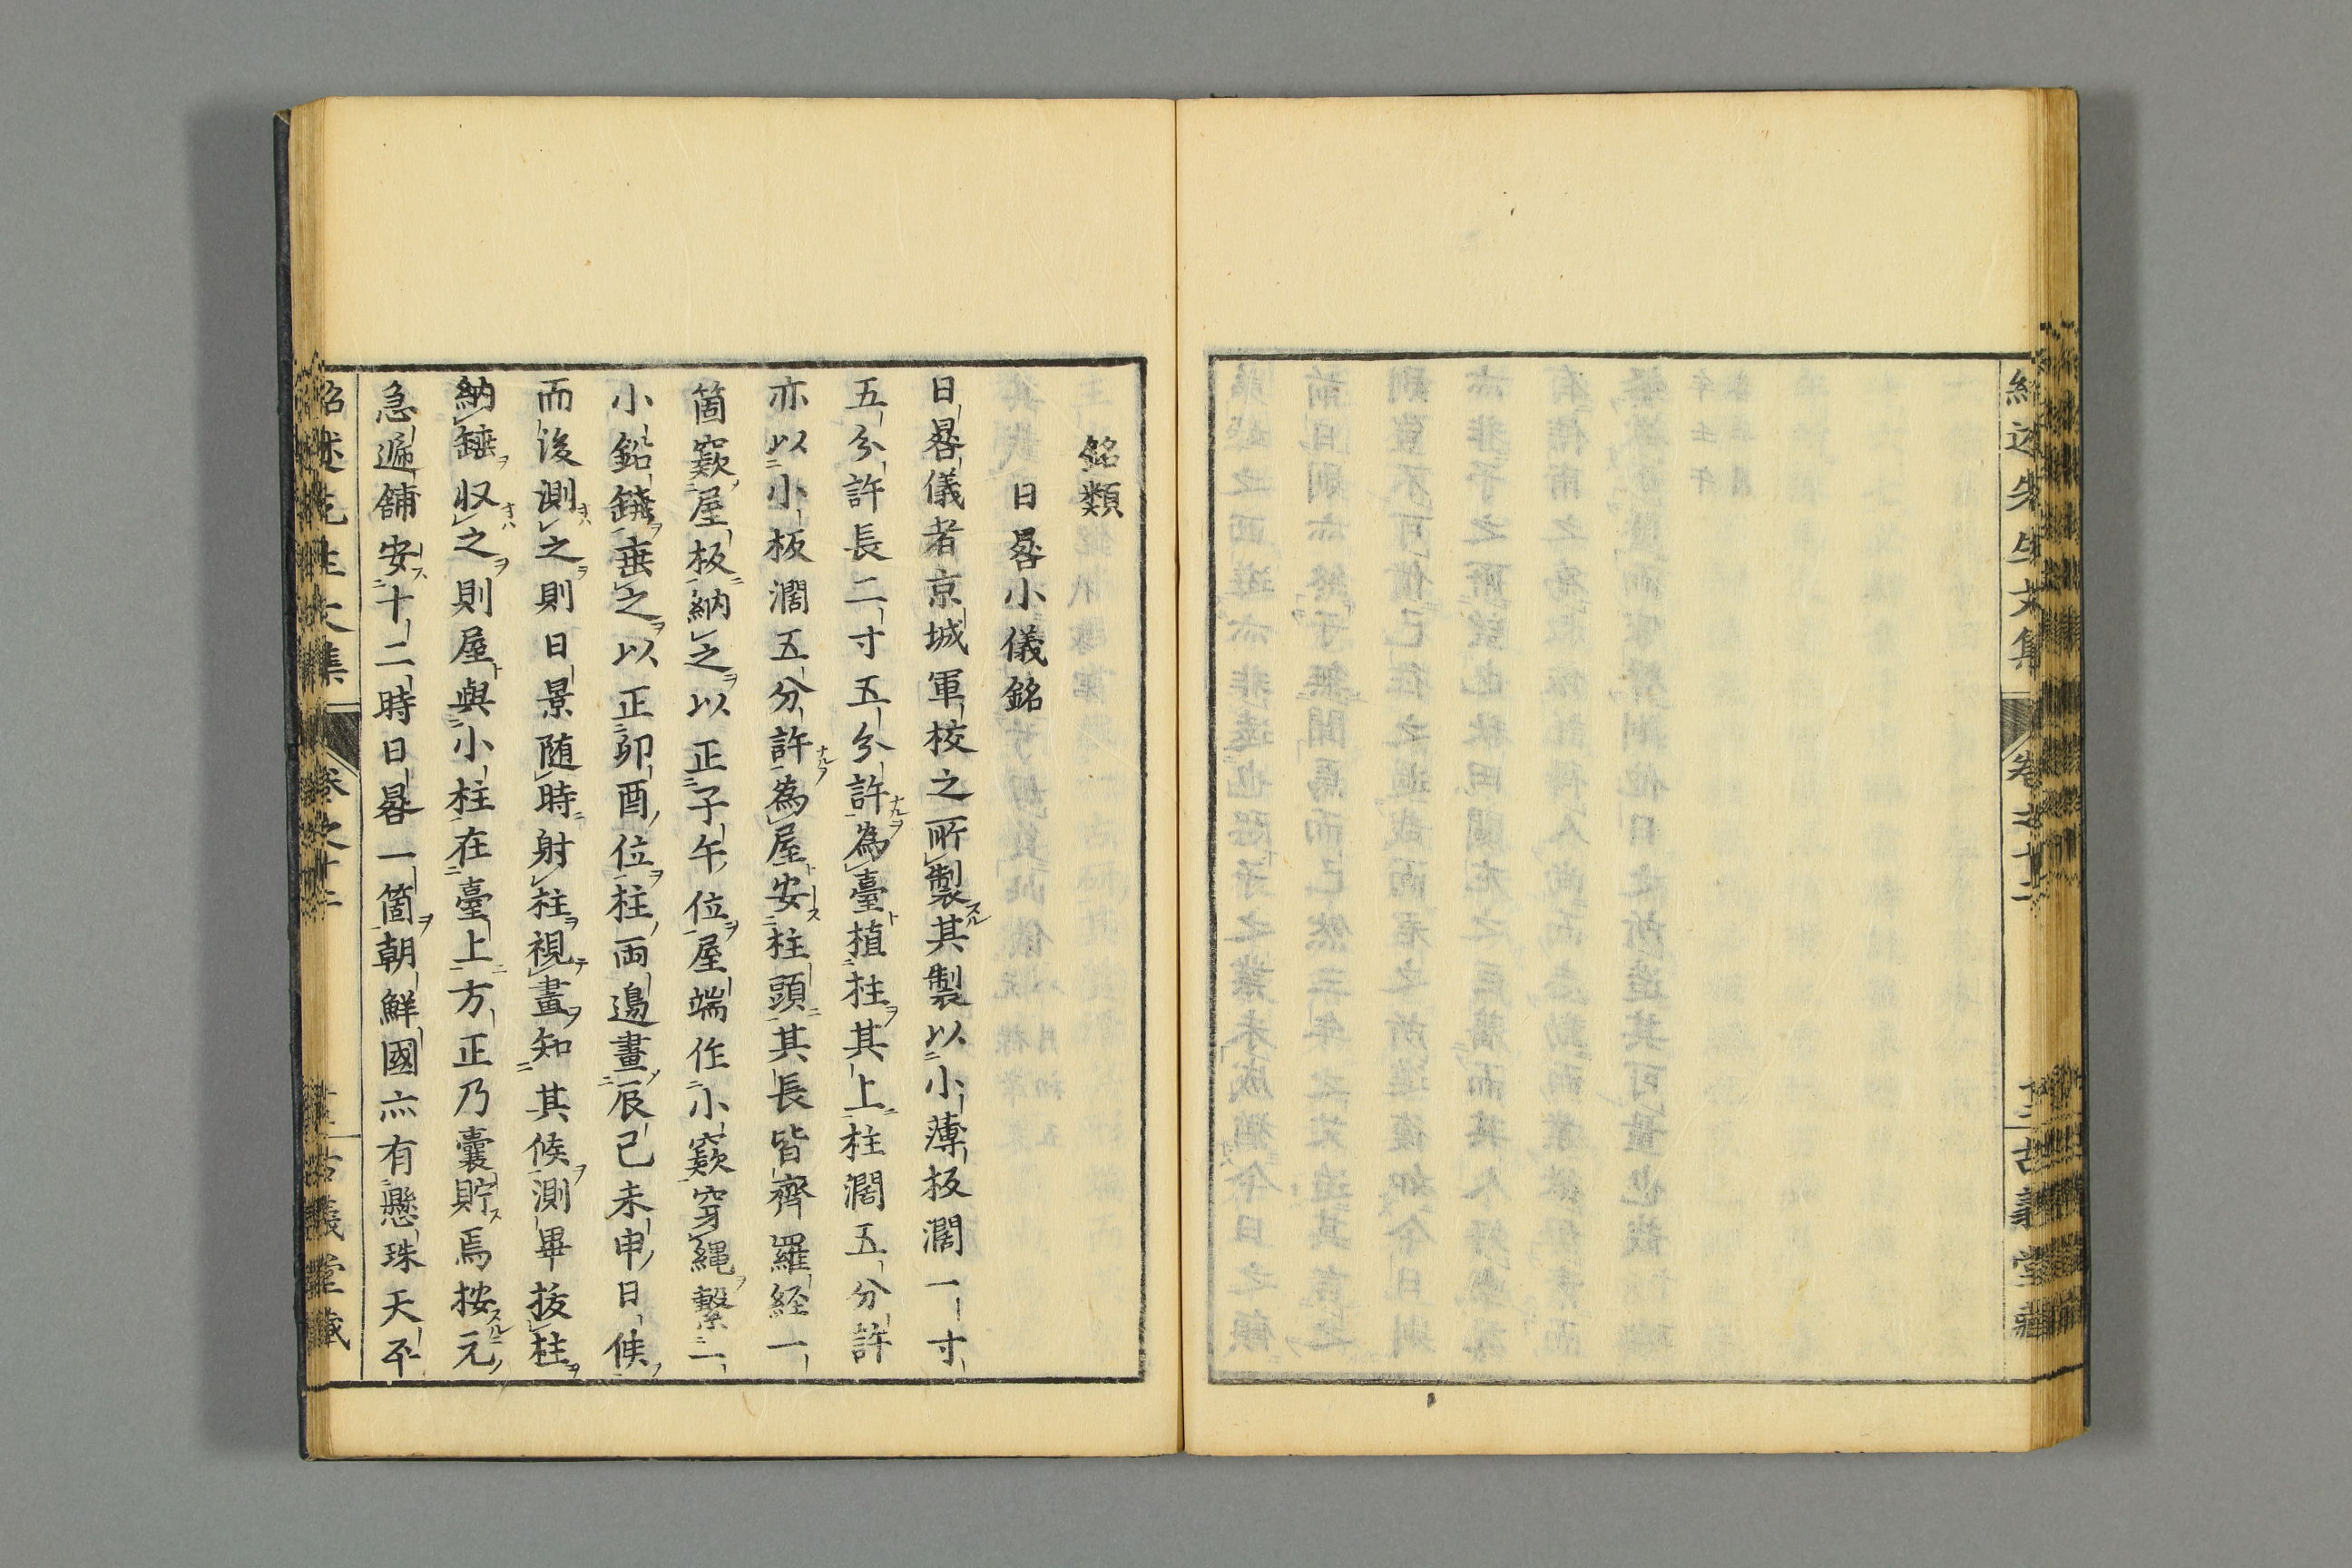 紹述先生文集 卷之十二 古義堂藏
銘類
日晷小儀銘
日晷儀者京城軍校之所製其製以小薄板濶一寸
五分許長二寸五分許為臺植柱其上柱濶五分許
亦以小板濶五分許為屋安柱頭其長皆齊羅経一
箇窾屋板納之以正子午位屋端作小窾穿縄繋一
小鉛錢垂之以正卯酉位柱両邉畫辰已未申日候
而後測之則日景随時射柱視畫知其候測畢拔柱
納錘収之則屋與小柱在臺上方正乃囊貯焉按元
急遞舖安十二時日晷一箇朝鮮國亦有懸珠天平
紹述先生文集 卷之十二 古義堂藏